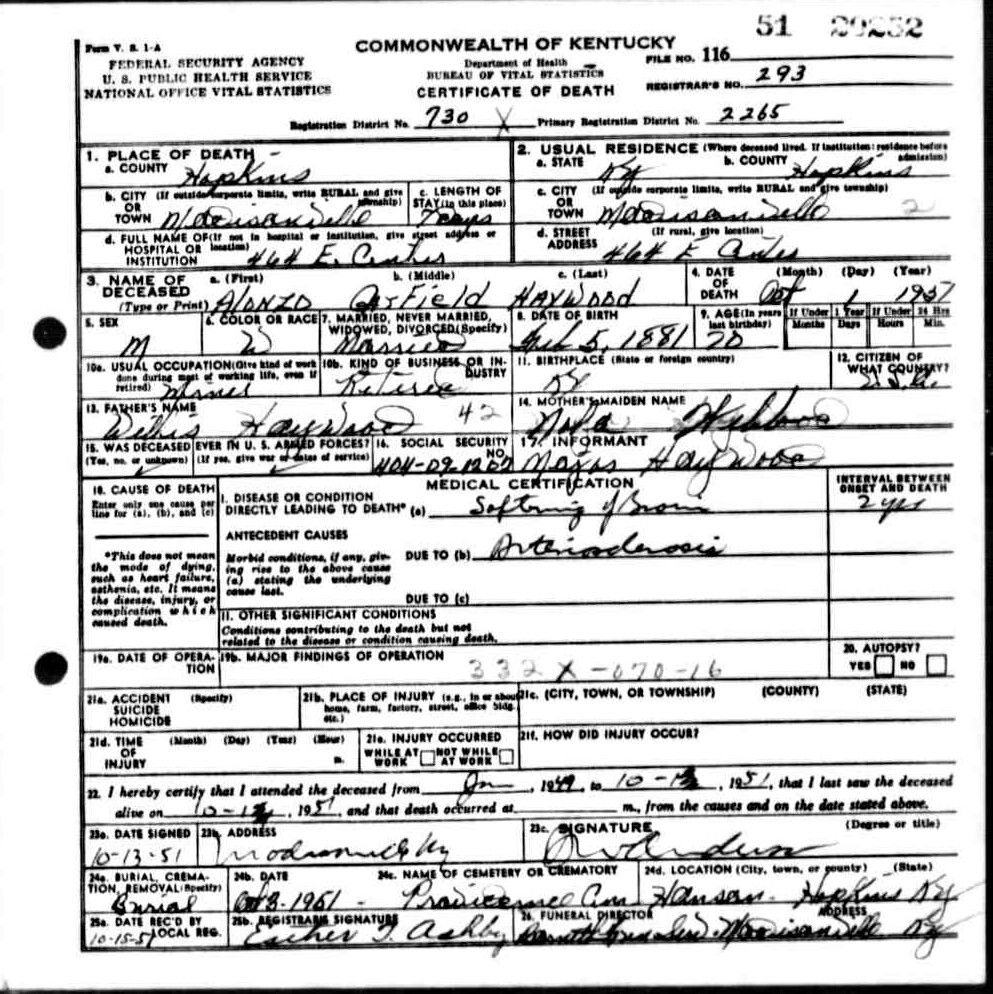 51 20252
Form V. S. 1-A
FEDERAL SECURITY AGENCY
U. S. PUBLIC HEALTH SERVICE
NATIONAL OFFICE VITAL STATISTICS
COMMONWEALTH OF KENTUCKY
Department of Health
BUREAU OF VITAL STATISTICS
CERTIFICATE OF DEATH
FILE NO. 116
REGISTRAR'S NO. 293
Registration District No. 730 X Primary Registration District No. 2265
1. PLACE OF DEATH
a. COUNTY Hopkins
2. USUAL RESIDENCE (Where deceased lived. If institution: residence before admission)
a. STATE Ky b. COUNTY Hopkins
b. CITY (If outside corporate limits, write RURAL and give township) OR TOWN Madisonville
c. LENGTH OF STAY (in this place)
c. CITY (If outside corporate limits, write RURAL and give township) OR TOWN Madisonville 2
d. FULL NAME OF (If not in hospital or institution, give street address or location) HOSPITAL OR INSTITUTION 464 E. Center
d. STREET ADDRESS (If rural, give location) 464 E. Center
3. NAME OF DECEASED (Type or Print)
a. (First) b. (Middle) c. (Last)
Alonzo Garfield Haywood
4. DATE OF DEATH (Month) (Day) (Year)
Oct 1 1951
5. SEX M
6. COLOR OR RACE W
7. MARRIED, NEVER MARRIED, WIDOWED, DIVORCED (Specify) Married
8. DATE OF BIRTH Feb 5, 1881
9. AGE (In years last birthday) 70
If Under 1 Year Months Days
If Under 24 Hrs Hours Min.
10a. USUAL OCCUPATION (Give kind of work done during most of working life, even if retired) Miner
10b. KIND OF BUSINESS OR INDUSTRY Retired
11. BIRTHPLACE (State or foreign country) Ky
12. CITIZEN OF WHAT COUNTRY? U.S.A.
13. FATHER'S NAME Willis Haywood 42
14. MOTHER'S MAIDEN NAME
15. WAS DECEASED EVER IN U. S. ARMED FORCES?
(Yes, no, or unknown) (If yes, give war or dates of service)
16. SOCIAL SECURITY NO. 404-09-1202
17. INFORMANT Haywood
MEDICAL CERTIFICATION
INTERVAL BETWEEN ONSET AND DEATH
18. CAUSE OF DEATH
Enter only one cause per line for (a), (b), and (c)
I. DISEASE OR CONDITION DIRECTLY LEADING TO DEATH* (a) Softening of Brain 2 yrs
ANTECEDENT CAUSES
Morbid conditions, if any, giving rise to the above cause (a) stating the underlying cause last.
DUE TO (b) Arteriosclerosis
DUE TO (c)
*This does not mean the mode of dying, such as heart failure, asthenia, etc. It means the disease, injury, or complication which caused death.
II. OTHER SIGNIFICANT CONDITIONS
Conditions contributing to the death but not related to the disease or condition causing death.
19a. DATE OF OPERATION
19b. MAJOR FINDINGS OF OPERATION
332X-070-16
20. AUTOPSY?
YES NO
21a. ACCIDENT (Specify) SUICIDE HOMICIDE
21b. PLACE OF INJURY (e.g., in or about home, farm, factory, street, office bldg. etc.)
21c. (CITY, TOWN, OR TOWNSHIP) (COUNTY) (STATE)
21d. TIME OF INJURY (Month) (Day) (Year) (Hour) m.
21e. INJURY OCCURRED
WHILE AT WORK NOT WHILE AT WORK
21f. HOW DID INJURY OCCUR?
22. I hereby certify that I attended the deceased from Jan, 1949, to 10-1, 1951, that I last saw the deceased
alive on 10-1, 1951, and that death occurred at m., from the causes and on the date stated above.
23a. DATE SIGNED 10-13-51
23b. ADDRESS Madisonville Ky
23c. SIGNATURE (Degree or title)
24a. BURIAL, CREMATION, REMOVAL (Specify) Burial
24b. DATE Oct 3-1951
24c. NAME OF CEMETERY OR CREMATORY
24d. LOCATION (City, town, or county) (State) Hanson Hopkins Ky
25a. DATE REC'D BY LOCAL REG. 10-15-51
25b. REGISTRARS SIGNATURE Esther T. Ashby
26. FUNERAL DIRECTOR ADDRESS
Madisonville Ky